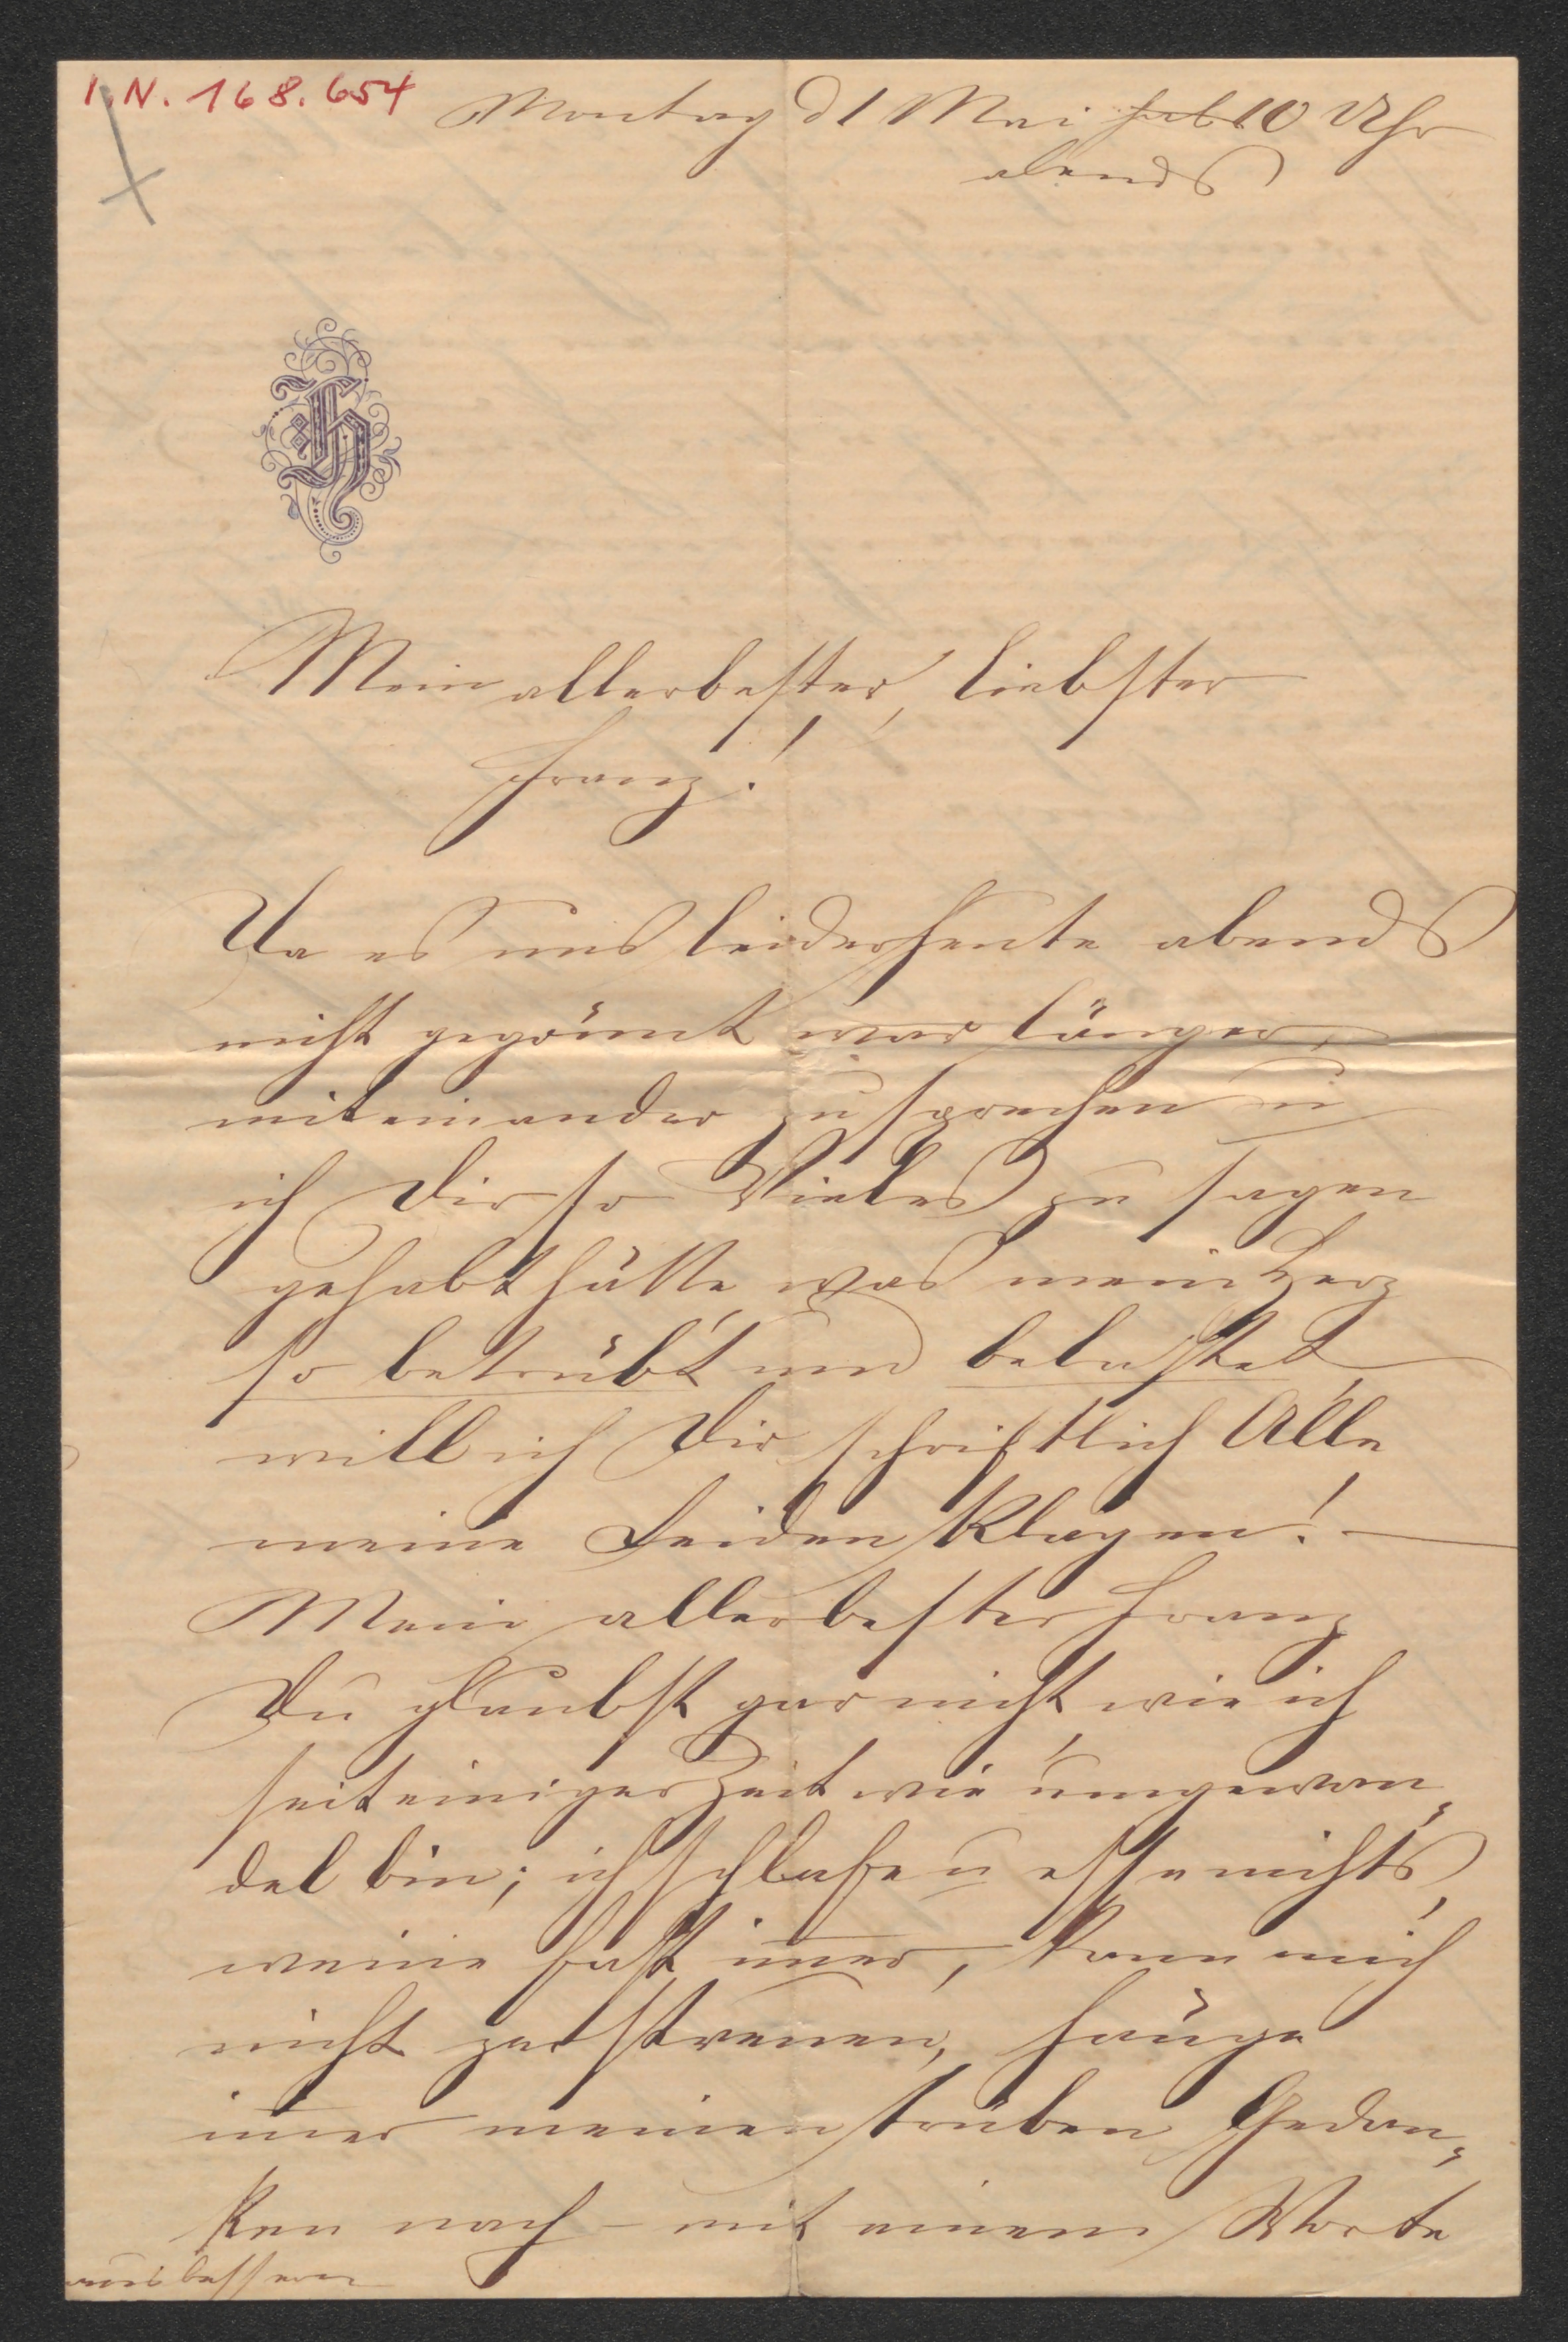 I.N. 168.654
Montag d 1 Mai halb 10 Uhr
abends
H
Mein allerbester, liebster
Franz!
Da es uns leider heute abends
nicht gegönnt war länger
miteinander zu sprechen u
ich Dir so Vieles zu sagen
gehabt hätte, was mein Herz
so betrübt und belastet,
will ich Dir schriftlich Alle
meine Leiden klagen! —
Mein allerbester Franz
Du glaubst gar nicht, wie ich
seit einiger Zeit wie umgewan„
del bin; ich schlafe u esse nichts,
weine fast im̅er, kann mich
nicht zerstreuen, hänge
im̅er meinen trüben Gedan„
ken nach – mit einem Worte
ausbessern